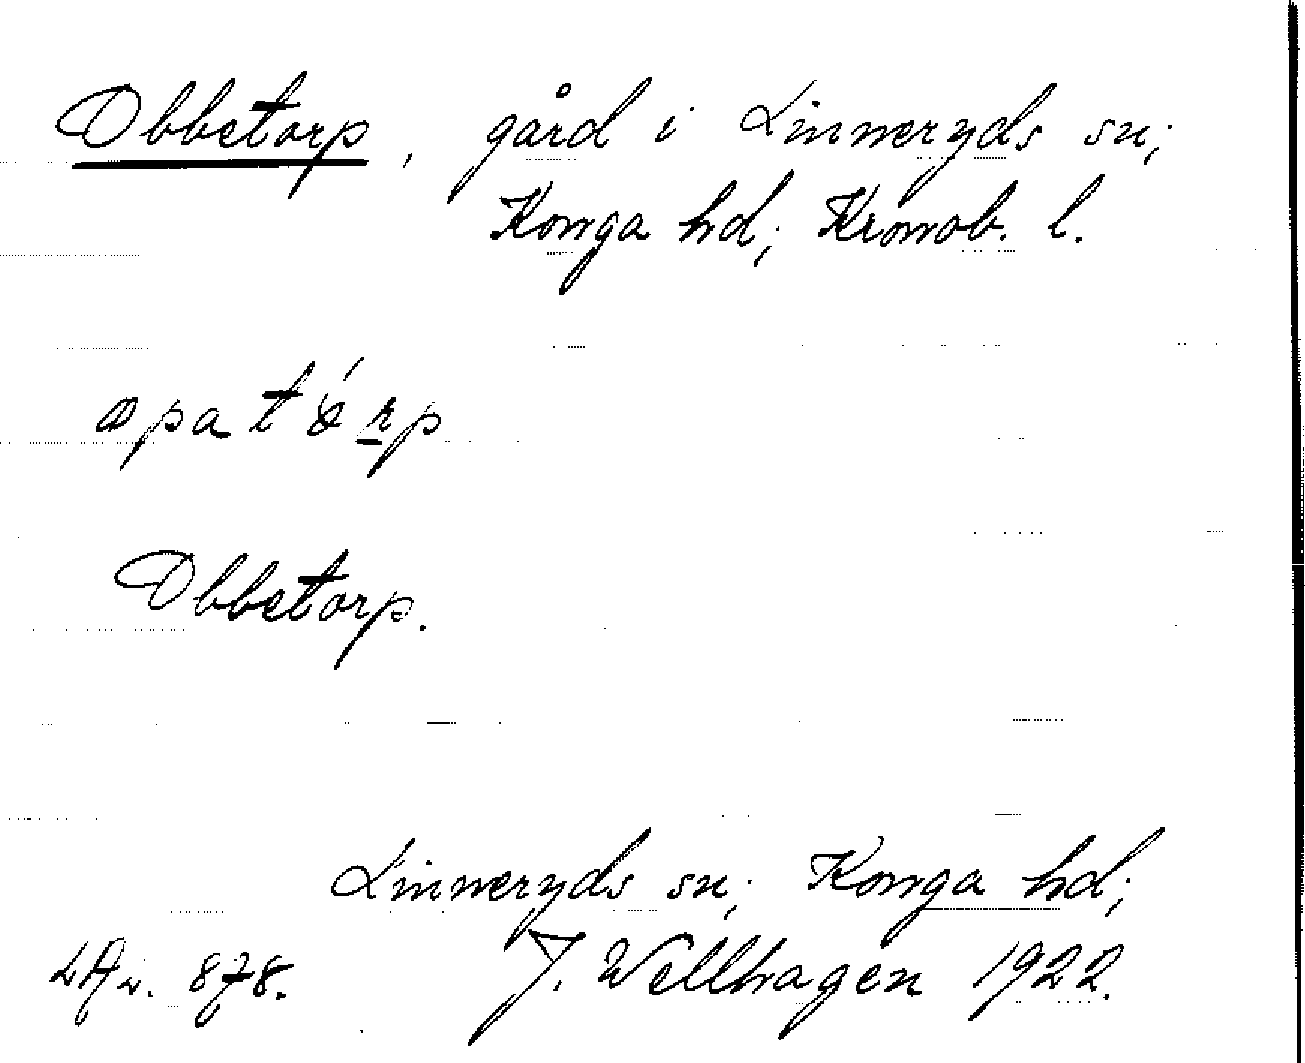 Obbetorp, gård i Linneryds sn;
Konga hd; Kronob. l.
Obbetorp.
Linneryds sn; Konga hd;
878. J. Wellhagen 1922.